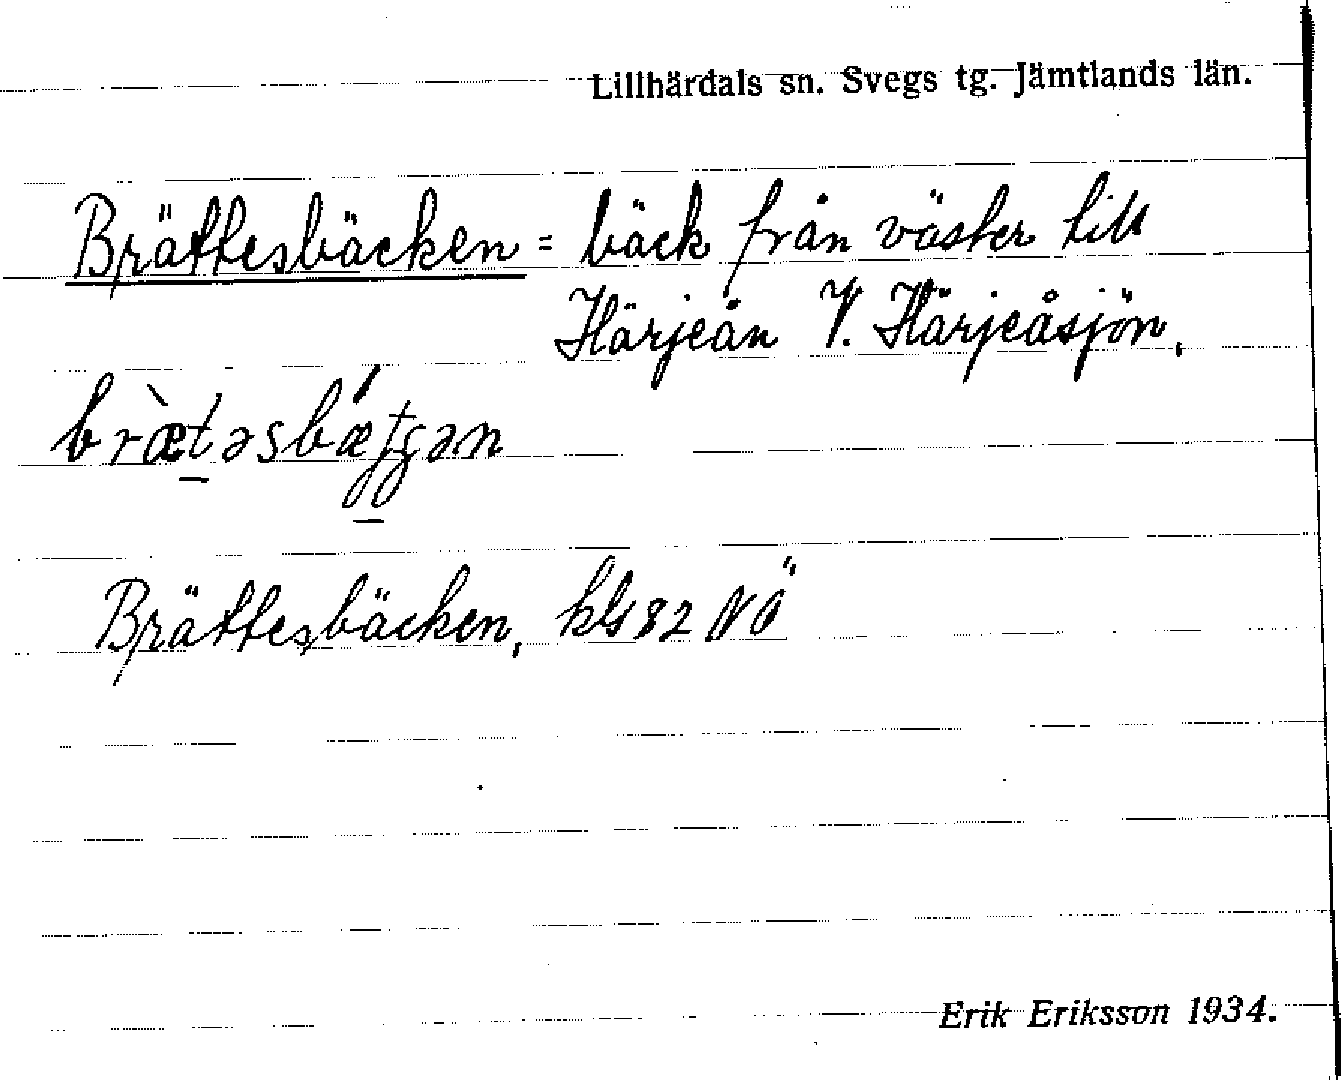 Lillhärdals sn. Svegs tg. Jämtlands län.
Brättesbäcken = bäck från väster till
Härjeån V. Härjeåsjön.
Brättesbäcken, kbl 82 NÖ
Erik Eriksson 1934.